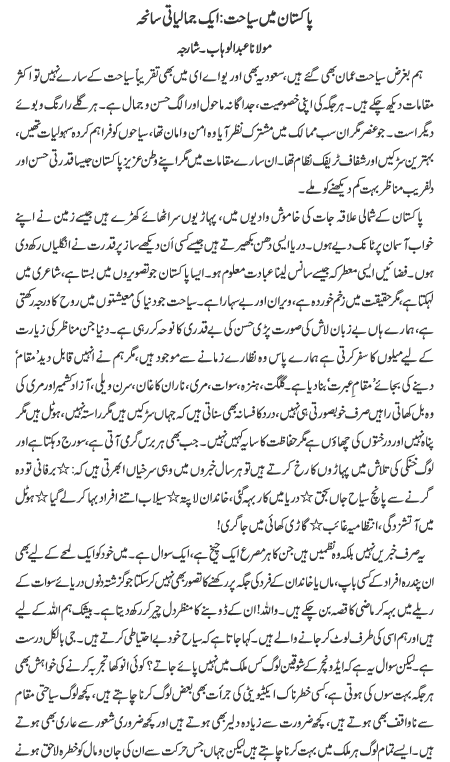 پاکستان میں سیاحت: ایک جمالیاتی سانحہ
مولانا عبدالوہاب۔ شارجہ
ہم بغرض سیاحت عمان بھی گئے ہیں، سعودیہ بھی اور یو اے ای میں بھی تقریباً سیاحت کے سارے نہیں تو اکثر
مقامات دیکھ چکے ہیں۔ ہر جگہ کی اپنی خصوصیت، جداگانہ ماحول اور الگ حسن و جمال ہے۔ ہر گلے را رنگ و بوئے
دیگر است۔ جو عنصر مگر ان سب ممالک میں مشترک نظر آیا وہ امن و امان تھا، سیاحوں کو فراہم کردہ سہولیات تھیں،
بہترین سڑکیں اور شفاف ٹریفک نظام تھا۔ ان سارے مقامات میں مگر اپنے وطن عزیز پاکستان جیسا قدرتی حسن اور
دلفریب مناظر بہت کم دیکھنے کو ملے۔
پاکستان کے شمالی علاقہ جات کی خاموش وادیوں میں، پہاڑ یوں سر اٹھائے کھڑے ہیں جیسے زمین نے اپنے
خواب آسمان پر ٹانک دیے ہوں۔ دریا ایسی دھن بکھیرتے ہیں جیسے کسی اَن دیکھے ساز پر قدرت نے انگلیاں رکھ دی
ہوں۔ فضائیں ایسی معطر کہ جیسے سانس لینا عبادت معلوم ہو۔ ایسا پاکستان جو تصویروں میں بستا ہے، شاعری میں
لہکتا ہے، مگر حقیقت میں زخم خوردہ ہے، ویران اور بے سہارا ہے۔ سیاحت جو دنیا کی معیشتوں میں روح کا درجہ رکھتی
ہے، ہمارے ہاں بے زبان لاش کی صورت پڑی حسن کی بے قدری کا نوحہ کر رہی ہے۔ دنیا جن مناظر کی زیارت
کے لیے میلوں کا سفر کرتی ہے ہمارے پاس وہ نظارے زمانے سے موجود ہیں، مگر ہم نے انہیں قابل دید ’مقام‘
دینے کی بجائے ’مقامِ عبرت‘ بنا دیا ہے۔ گلگت، ہنزہ، سوات، مری، ناران کاغان، سرن ویلی، آزاد کشمیر اور مری کی
وہ بل کھاتی راہیں صرف خوبصورتی ہی نہیں، درد کا فسانہ بھی سناتی ہیں کہ جہاں سڑکیں ہیں مگر راستہ نہیں، ہوٹل ہیں مگر
پناہ نہیں اور درختوں کی چھاؤں ہے مگر حفاظت کا سایہ کہیں نہیں۔ جب بھی ہر برس گرمی آتی ہے، سورج دہکتا ہے اور
لوگ خنکی کی تلاش میں پہاڑوں کا رخ کرتے ہیں تو ہر سال خبروں میں وہی سرخیاں ابھرتی ہیں کہ: ☆ برفانی تودہ
گرنے سے پانچ سیاح جاں بحق ☆ دریا میں کار بہہ گئی، خاندان لاپتہ ☆ سیلاب اتنے افراد بہا کر لے گیا ☆ ہوٹل
میں آتشزدگی، انتظامیہ غائب ☆ گاڑی کھائی میں جا گری!
یہ صرف خبریں نہیں بلکہ وہ نظمیں ہیں جن کا ہر مصرع ایک چیخ ہے، ایک سوال ہے۔ میں خود کو ایک لمحے کے لیے بھی
ان پندرہ افراد کے کسی باپ، ماں یا خاندان کے فرد کی جگہ پر رکھنے کا تصور بھی نہیں کر سکتا جو گزشتہ دنوں دریائے سوات کے
ریلے میں بہہ کر ماضی کا قصہ بن چکے ہیں۔ واللہ! ان کے ڈوبنے کا منظر دل چیر کر رکھ دیتا ہے۔ بیشک ہم اللہ کے لیے
ہیں اور ہم اسی کی طرف لوٹ کر جانے والے ہیں۔ کہا جاتا ہے کہ سیاح خود بے احتیاطی کرتے ہیں۔ جی بالکل درست
ہے۔ لیکن سوال یہ ہے کہ ایڈونچر کے شوقین لوگ کس ملک میں نہیں پائے جاتے؟ کوئی انوکھا تجربہ کرنے کی خواہش بھی
ہر جگہ بہت سوں کی ہوتی ہے، کسی خطرناک ایکٹیویٹی کی جرأت بھی بعض لوگ کرنا چاہتے ہیں، کچھ لوگ سیاحتی مقام
سے ناواقف بھی ہوتے ہیں، کچھ ضرورت سے زیادہ دلیر بھی ہوتے ہیں اور کچھ ضروری شعور سے عاری بھی ہوتے
ہیں۔ ایسے تمام لوگ ہر ملک میں بہت کرنا چاہتے ہیں لیکن جہاں جس حرکت سے ان کی جان و مال کو خطرہ لاحق ہونے